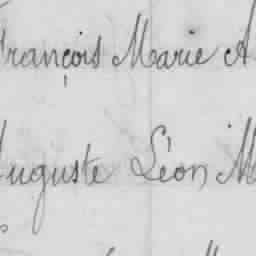 François Marie A
Auguste Léon M